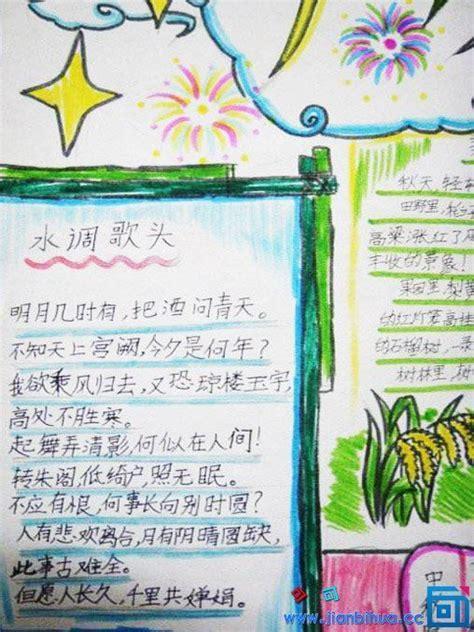 水调歌头
明月几时有，把酒问青天。
不知天上宫阙，今夕是何年？
我欲乘风归去，又恐琼楼玉宇，
高处不胜寒。
起舞弄清影，何似在人间！
转朱阁，低绮户，照无眠。
不应有恨，何事长向别时圆？
人有悲欢离合，月有阴晴圆缺，
此事古难全。
但愿人长久，千里共婵娟。
秋天，轻
田野里，
高粱涨红了
丰收的景象！
果园里，梨
的红灯笼高挂
的石榴树，一
树林里，树
中
www.jianbihua.cc